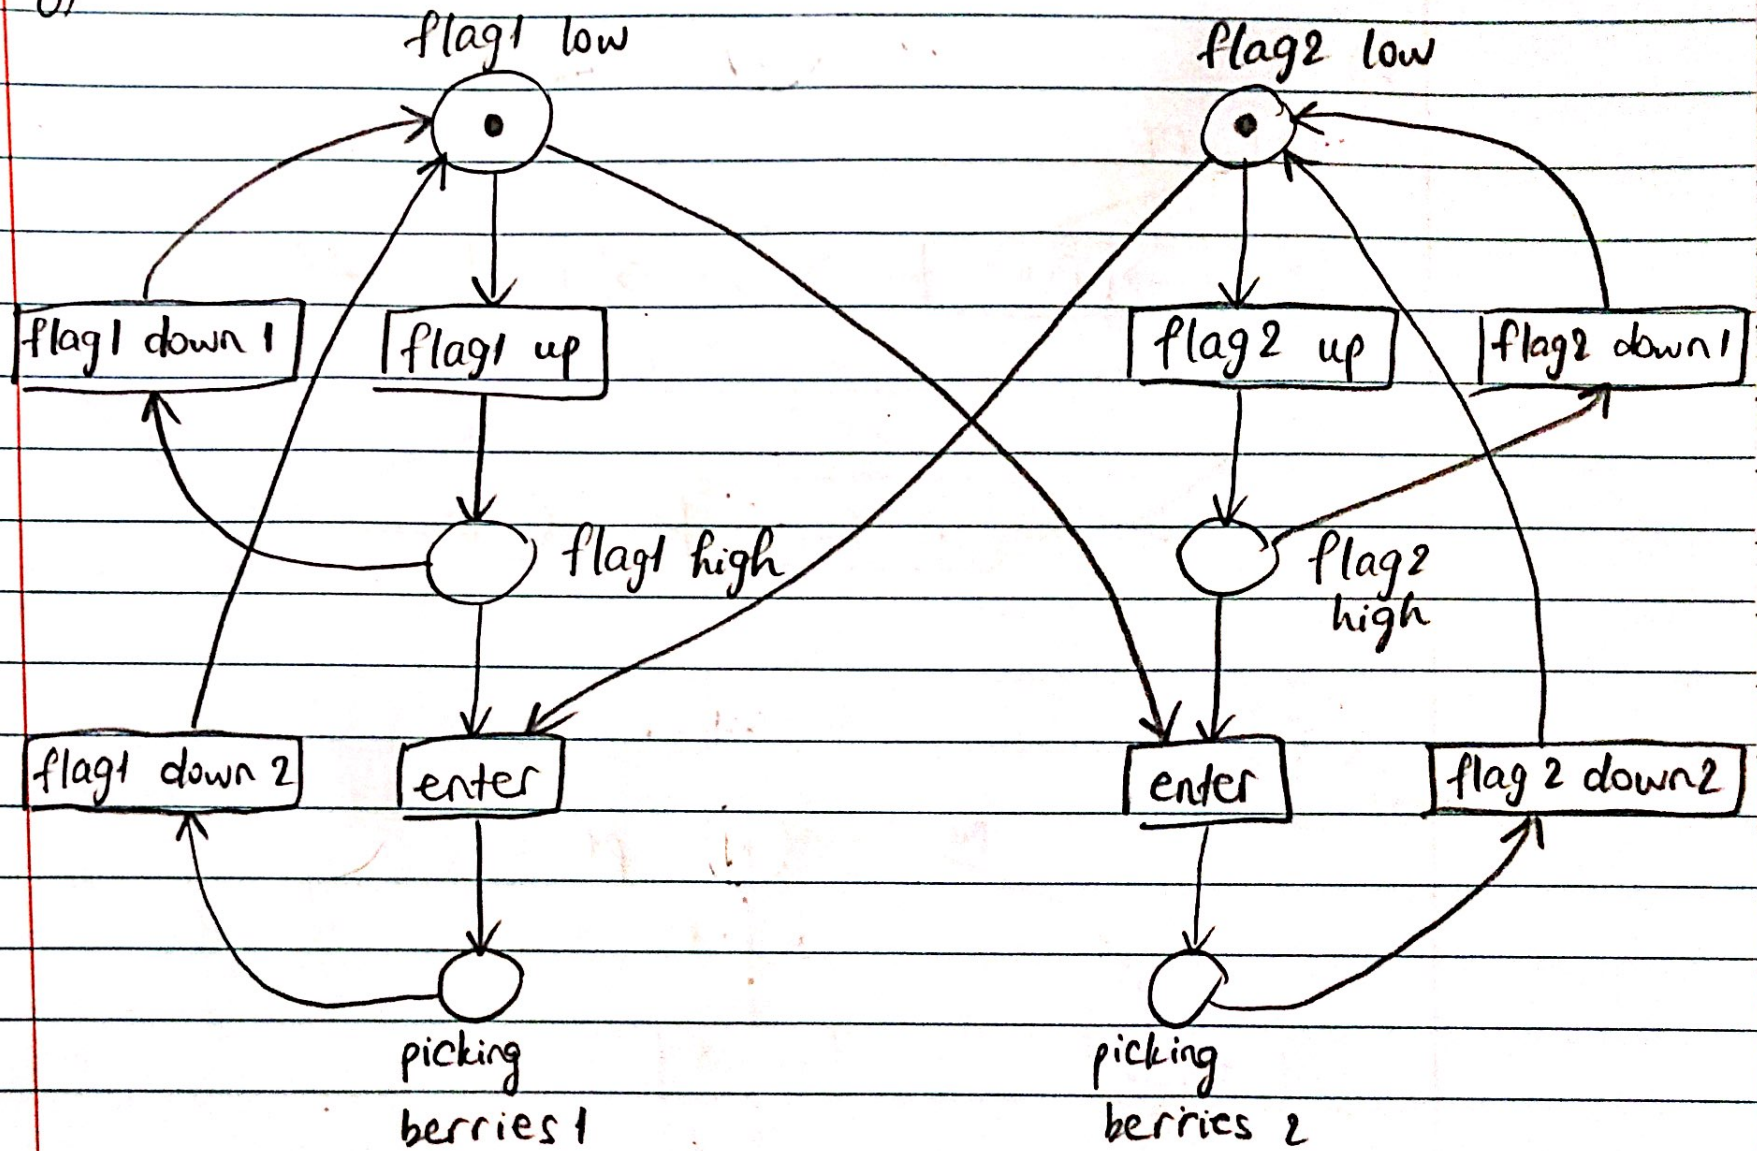 flag1 low
flag2 low
flag1 down 1
flag1 up
flag2 up
flag2 down1
flag1 high
flag2
high
flag1 down 2
enter
enter
flag 2 down2
picking
berries 1
picking
berries 2